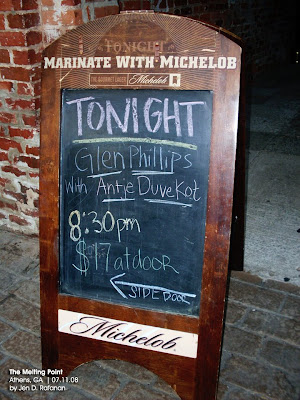 TONIGHT
MARINATE WITH MICHELOB
Michelob
TONIGHT
Glen Phillips
With Antje Duvekot
8:30pm
$17 at door
SIDE DOOR
Michelob.
The Melting Point
Athens, GA | 07.11.08
by Jen D. Rafanan